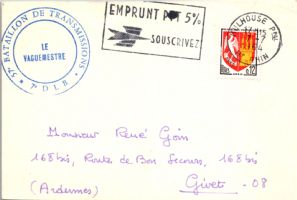 57e BATAILLON DE TRANSMISSIONS
LE
VAGUEMESTRE
* 7e D.L.B *
EMPRUNT PTT 5%
SOUSCRIVEZ
MULHOUSE
RHIN
Monsieur René Goin
168 bis, Route de Bon Secours, 168 bis
(Ardennes) Givet - 08